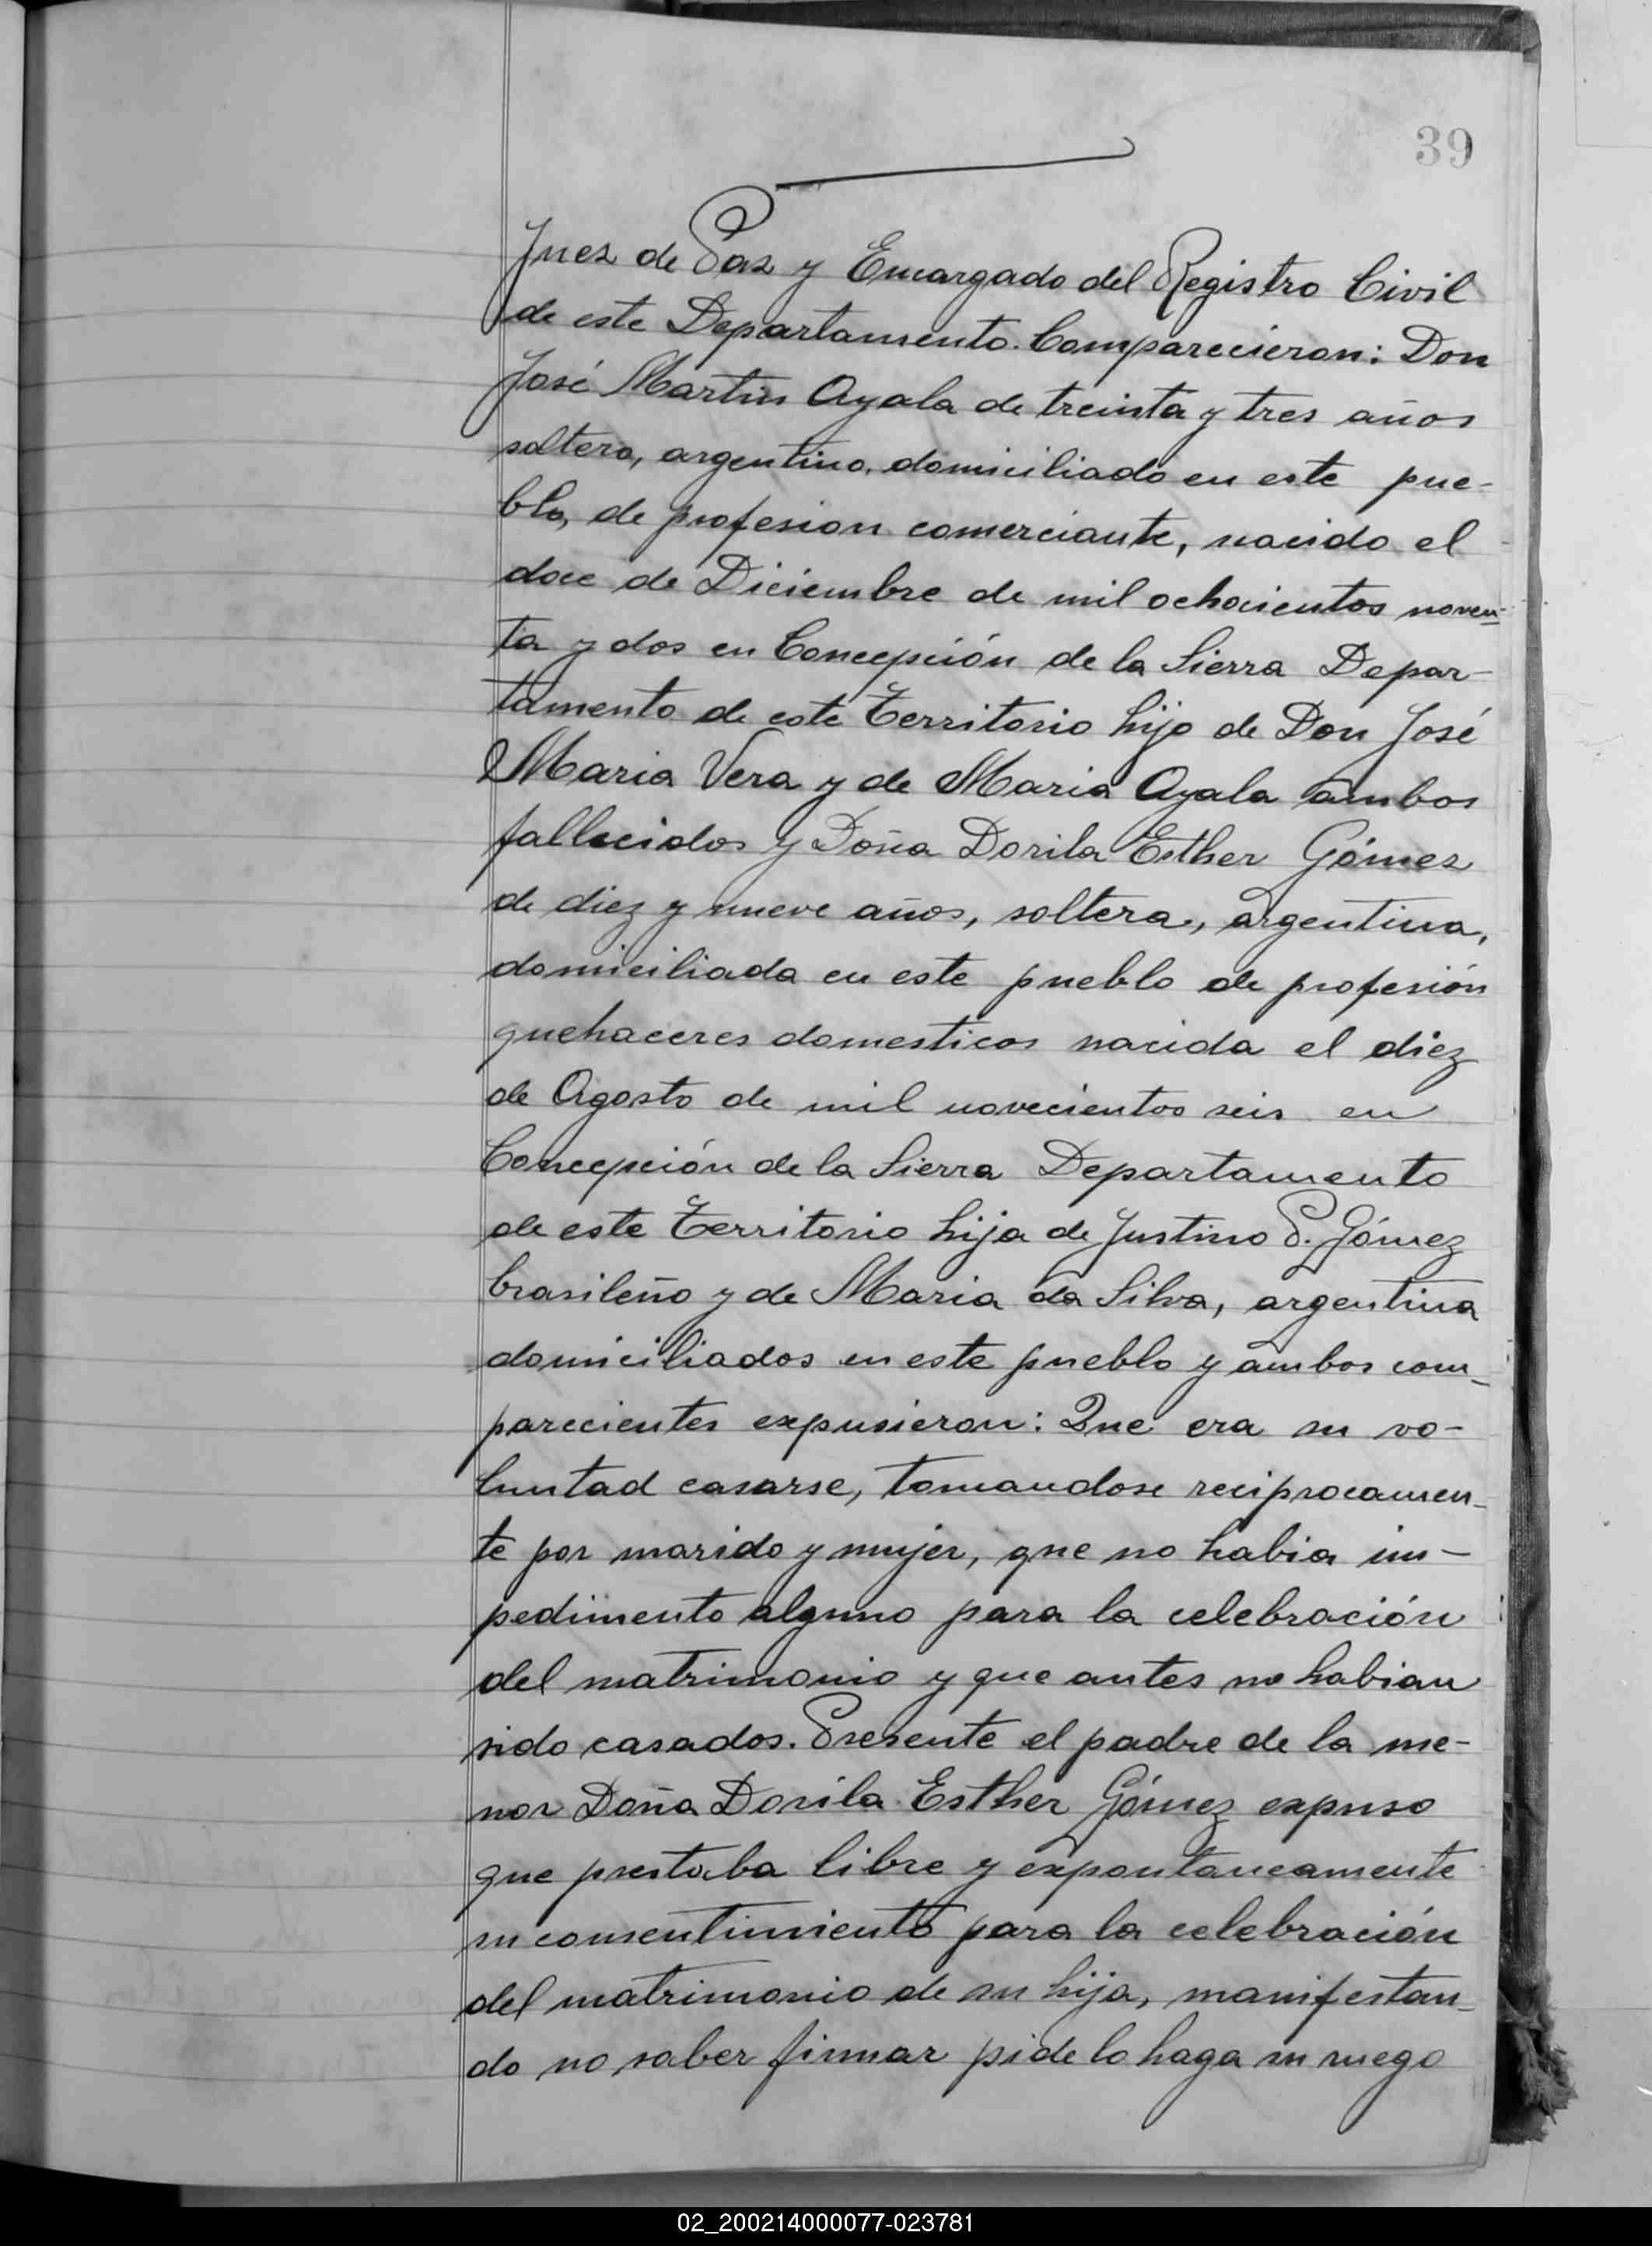 39
Juez de Paz y Encargado del Registro Civil
de este Departamento. Comparecieron: Don
José Martin Ayala de treinta y tres años
soltero, argentino, domiciliado en este pue-
blo, de profesion comerciante, nacido el
doce de Diciembre de mil ochocientos noven-
ta y dos en Concepción de la Sierra Depar-
tamento de este Territorio hijo de Don José
Maria Vera y de Maria Ayala ambos
fallecidos y Doña Dorila Esther Gómez
de diez y nueve años, soltera, argentina,
domiciliada en este pueblo de profesión
quehaceres domesticos nacida el diez
de Agosto de mil novecientos seis en
Concepción de la Sierra Departamento
de este Territorio hija de Justino P. Gómez
brasileño y de Maria da Silva, argentina
domiciliados en este pueblo y ambos com-
parecientes expusieron: Que era su vo-
luntad casarse, tomandose reciprocamen-
te por marido y mujer, que no habia im-
pedimento alguno para la celebración
del matrimonio y que antes no habian
sido casados. Presente el padre de la me-
nor Doña Dorila Esther Gómez expuso
que prestaba libre y expontaneamente
su consentimiento para la celebración
del matrimonio de su hija, manifestan-
do no saber firmar pide lo haga su ruego
02_200214000077-023781